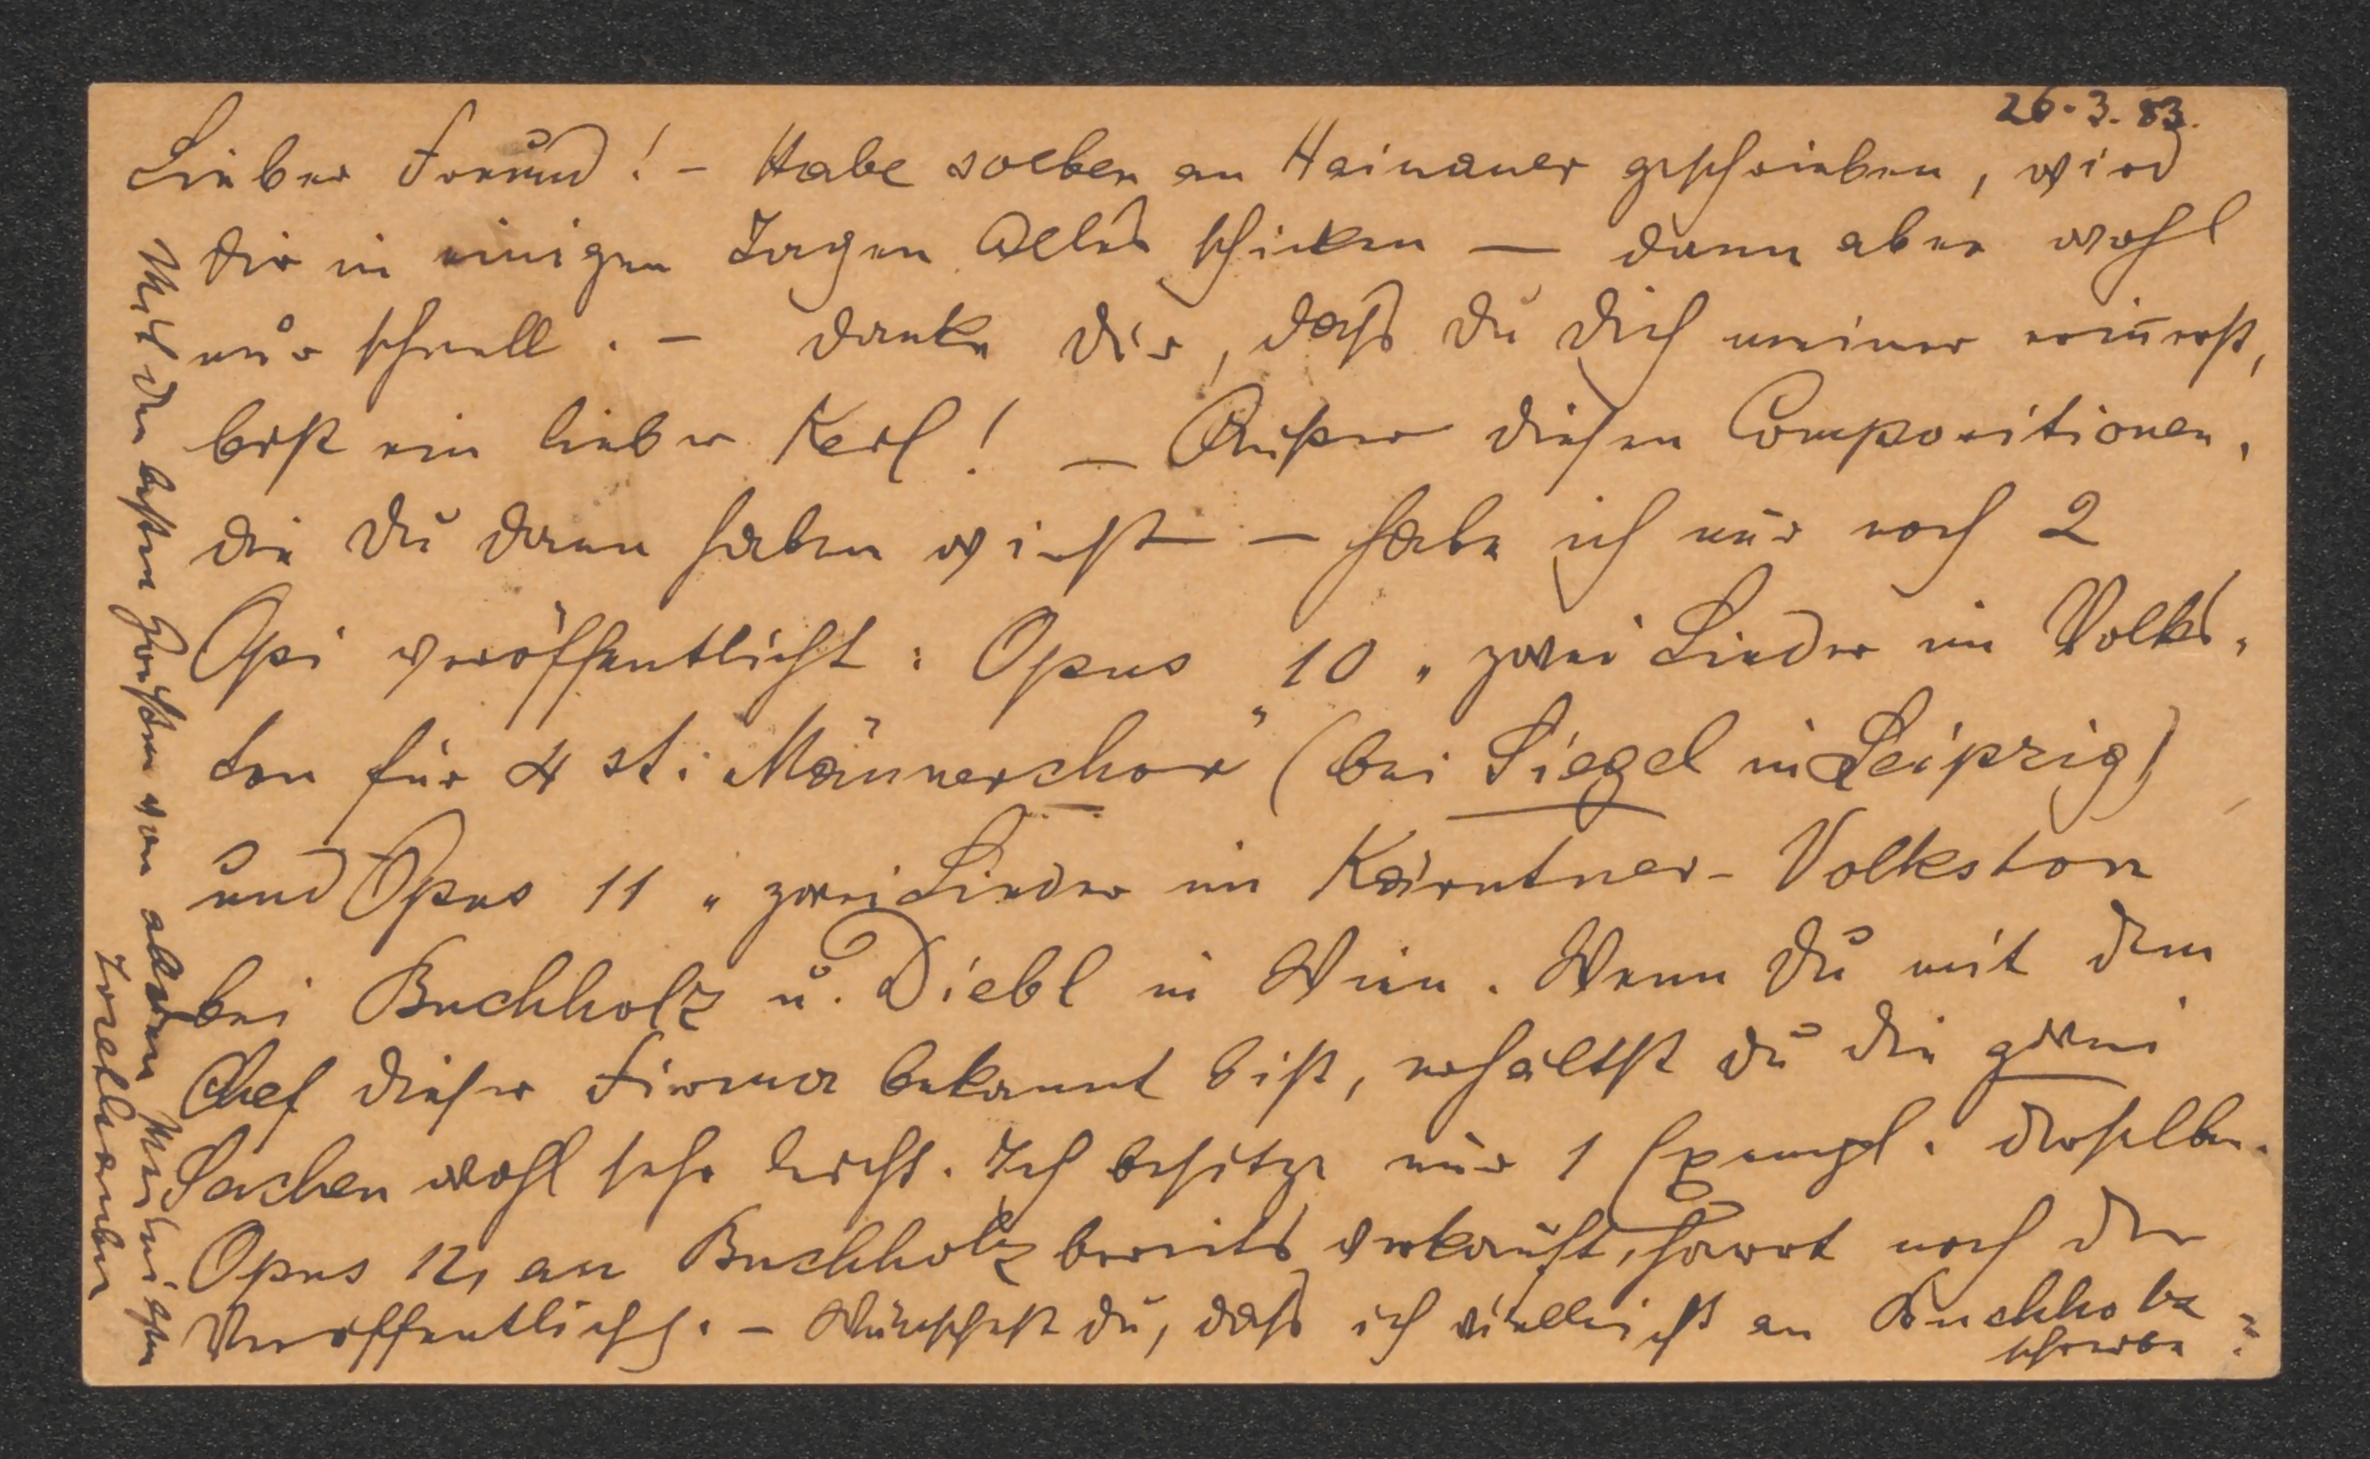 26.3.83.
Lieber Freund! – Habe soeben an Hainauer geschrieben, wird
dir in einigen Tagen Alles schicken — dann aber wohl
nur schnell. – Danke dir, dass du dich meiner erin̄erst,
bist ein lieber Kerl! – Außer diesen Compositionen,
die du dann haben wirst – habe ich nur noch 2
Opi veröffentlicht: Opus 10 „zwei Lieder im Volks-
ton für 4 st. Männerchor" (bei Siegel in Leipzig)
und Opus 11 „zwei Lieder im Kärntner-Volkston
bei Buchholz u. Diebl in Wien. Wenn du mit dem
Chef dieser Firma bekannt bist, erhältst du die zwei
Sachen wohl sehr leicht. Ich besitze nur 1 Exempl. derselben.
Opus 12, an Buchholz bereits verkauft, harrt noch der
Veröffentlichg. – Wünschest du, dass ich vielleicht an Buchholz
schreibe?
Mit den besten Grüßen von allen Meinigen